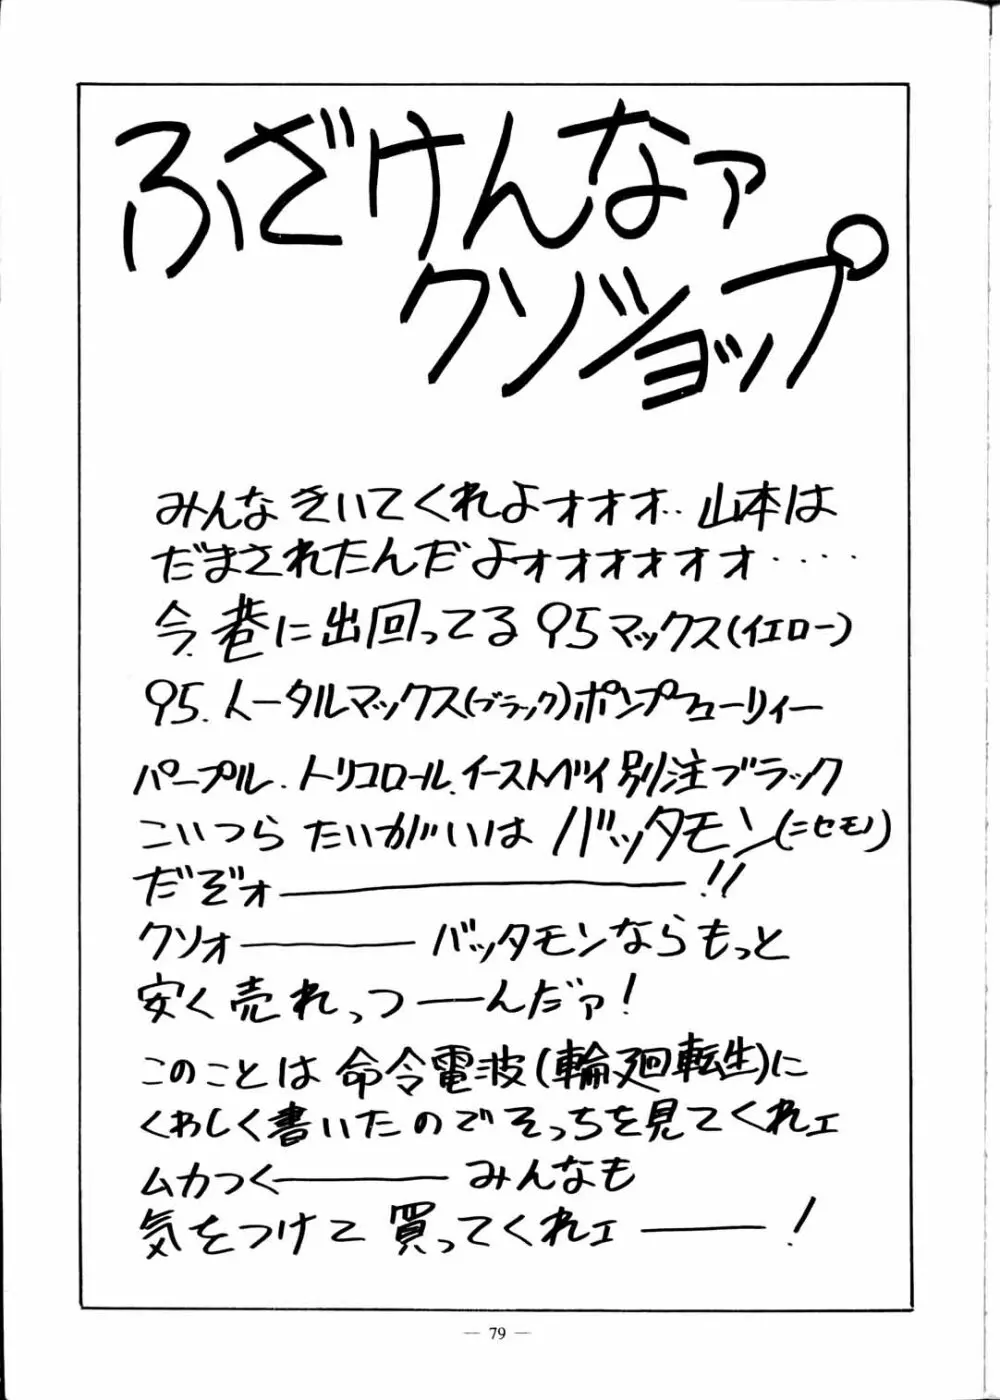 ふざけんなァ
クソショップ
みんなきいてくれよォオオ‥山本は
だまされたんだよォォォォォォ‥‥
今、巷に出回ってる95マックス(イエロー)
95.トータルマックス(ブラック)ポンプフューリィー
パープル.トリコロール.イーストベイ別注ブラック
こいつらたいがいはバッタモン(ニセモノ)
だぞォ――――!!
クソォ――― バッタモンならもっと
安く売れっつーーんだァ!
このことは命令電波(輪廻転生)に
くわしく書いたのでそっちを見てくれェ
ムカつくーーー みんなも
気をつけて買ってくれェ――!
― 79 ―